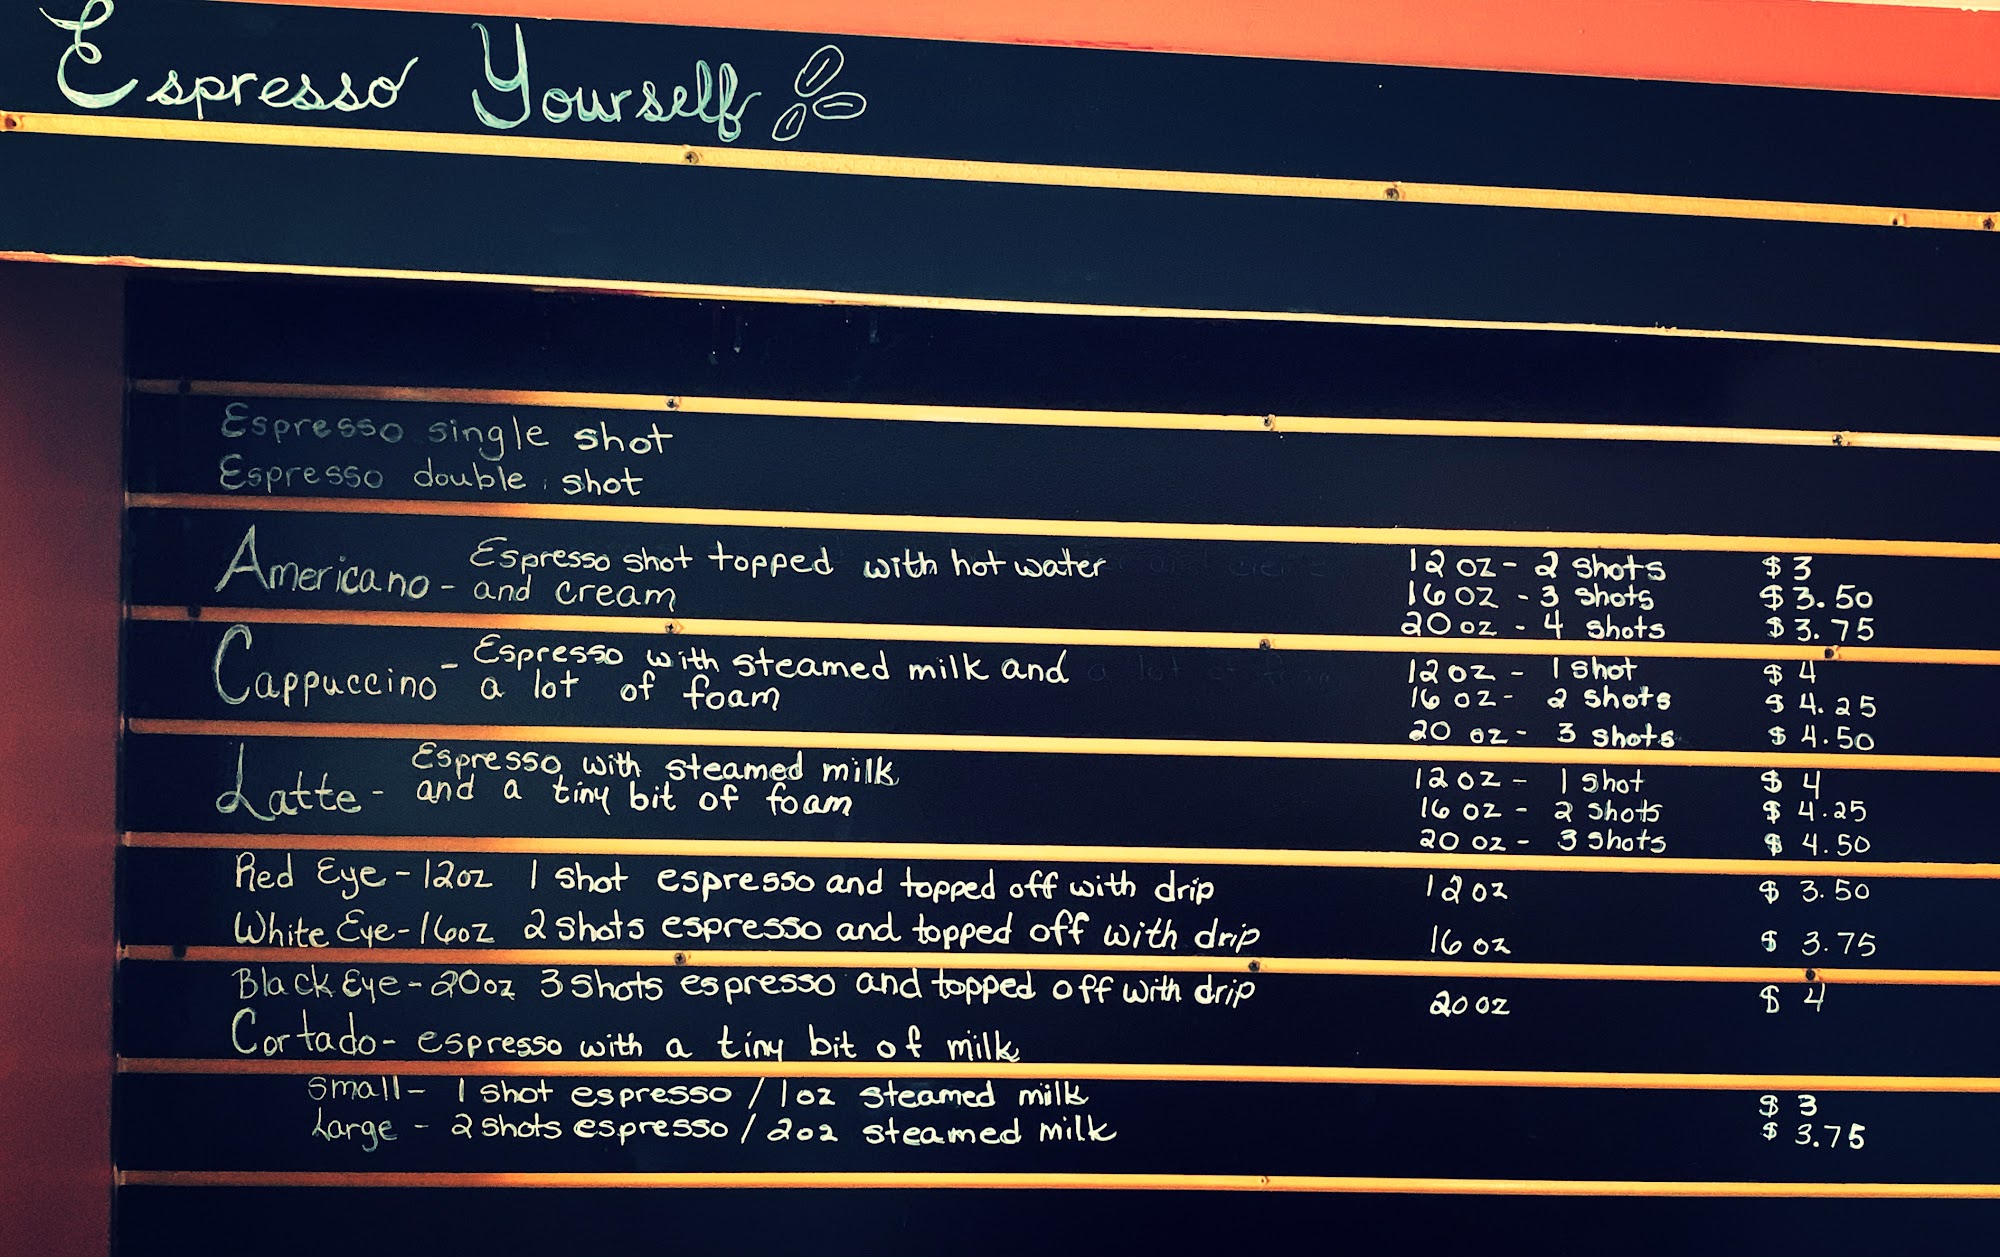 Espresso Yourself
Espresso single shot
Espresso double shot
Americano - Espresso shot topped with hot water and cream
12 oz - 2 shots $3
16 oz - 3 shots $3.50
20 oz - 4 shots $3.75
Cappuccino - Espresso with steamed milk and a lot of foam
12 oz - 1 shot $4
16 oz - 2 shots $4.25
20 oz - 3 shots $4.50
Latte - Espresso with steamed milk and a tiny bit of foam
12 oz - 1 shot $4
16 oz - 2 shots $4.25
20 oz - 3 shots $4.50
Red Eye - 12oz 1 shot espresso and topped off with drip 12 oz $3.50
White Eye - 16oz 2 shots espresso and topped off with drip 16 oz $3.75
Black Eye - 20oz 3 shots espresso and topped off with drip 20 oz $4
Cortado - espresso with a tiny bit of milk
Small - 1 shot espresso / 1oz steamed milk $3
Large - 2 shots espresso / 2oz steamed milk $3.75